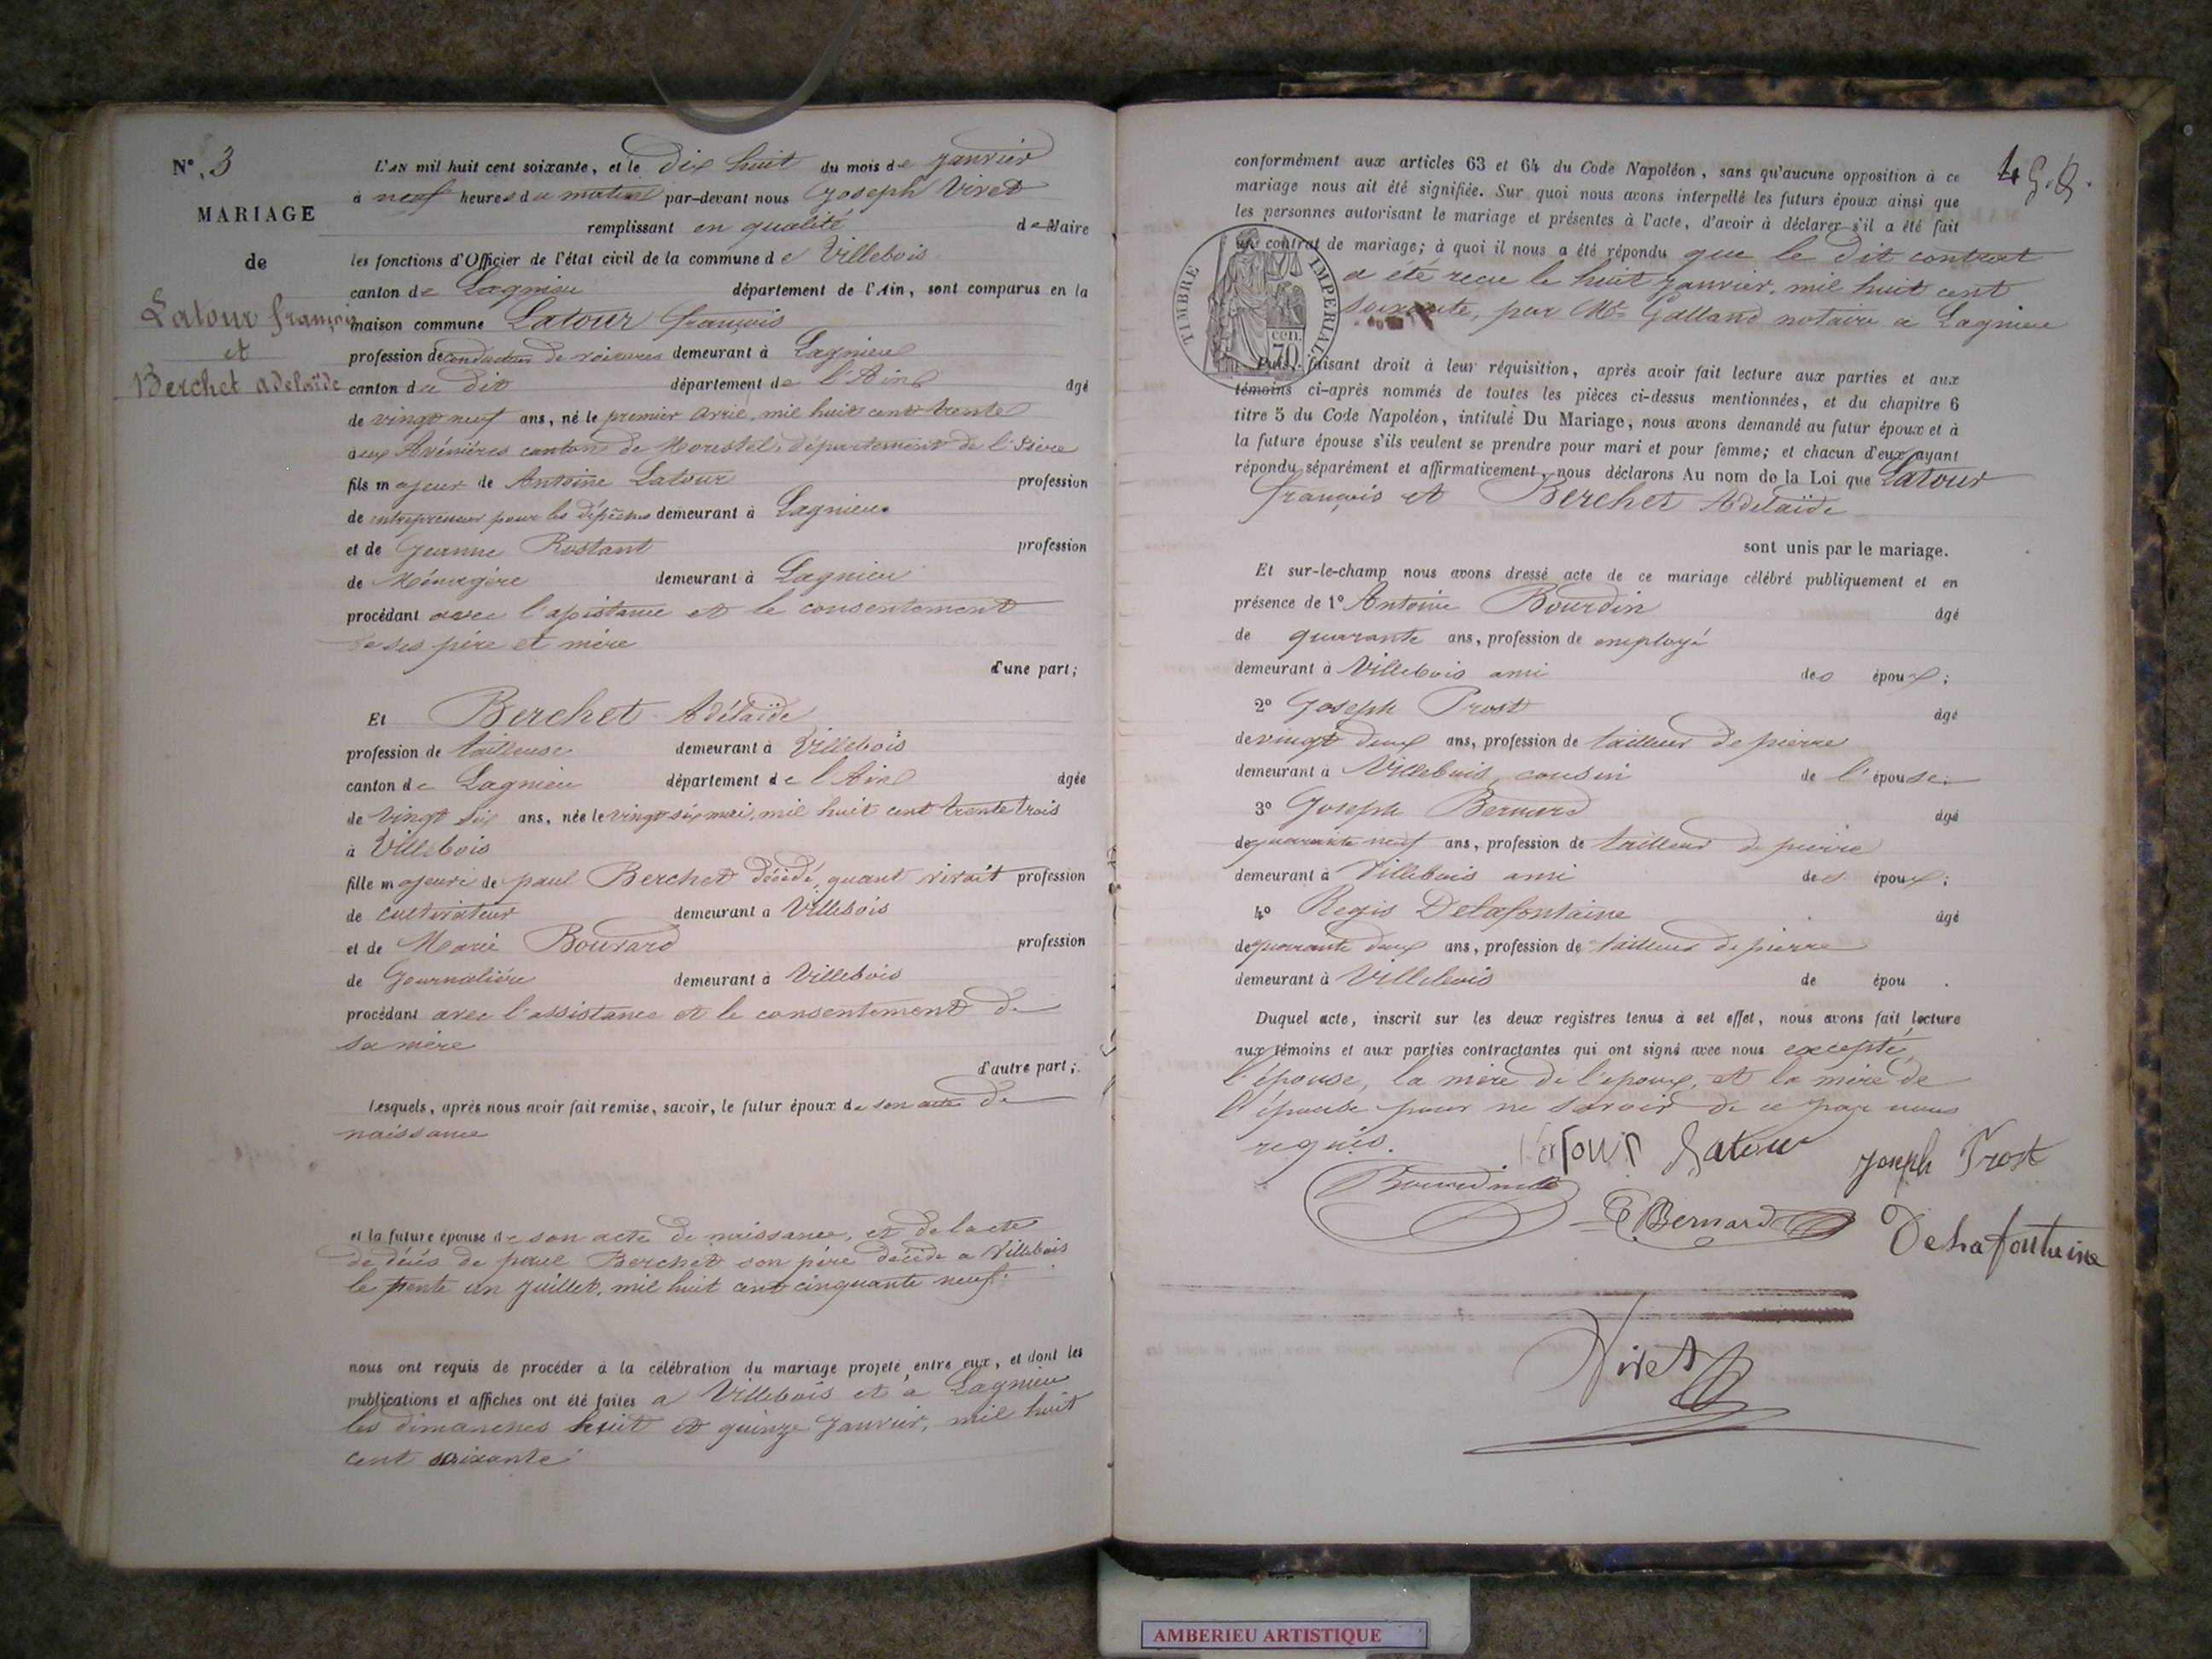 N° 3
MARIAGE
de
Latour françois
et
Berchet adelaïde
L'AN mil huit cent soixante, et le dix huit du mois de janvier
à neuf heures du matin par-devant nous Joseph Viret
remplissant en qualité de Maire
les fonctions d'Officier de l'état civil de la commune de Villebois
canton de Lagnieu département de l'Ain, sont comparus en la
maison commune Latour françois
profession de conducteur de voitures demeurant à Lagnieu
canton du dit département de l'Ain âgé
de vingt neuf ans, né le premier avril, mil huit cent trente
aux Avénières canton de Morestel, département de l'Isère
fils majeur de Antoine Latour profession
de entrepreneur pour les dépêches demeurant à Lagnieu
et de Jeanne Rostant profession
de Ménagère demeurant à Lagnieu
procédant avec l'assistance et le consentement
de ses père et mère
d'une part;
Et Berchet Adélaïde
profession de tailleuse demeurant à Villebois
canton de Lagnieu département de l'Ain âgée
de vingt six ans, née le vingt six mai, mil huit cent trente trois
à Villebois
fille majeure de paul Berchet décédé, quant vivait profession
de cultivateur demeurant à Villebois
et de Marie Bouvard profession
de Journalière demeurant à Villebois
procédant avec l'assistance et le consentement de
sa mère
d'autre part;
Lesquels, après nous avoir fait remise, savoir, le futur époux de son acte de
naissance
et la future épouse de son acte de naissance, et de lacte
de décés de paul Berchet son père décédé a Villebois
le trente un juillet, mil huit cent cinquante neuf.
nous ont requis de procéder à la célébration du mariage projeté entre eux, et dont les
publications et affiches ont été faites a Villebois et a Lagnieu
les dimanches huit et quinze janvier, mil huit
cent soixante
4
conformément aux articles 63 et 64 du Code Napoléon, sans qu'aucune opposition à ce
mariage nous ait été signifiée. Sur quoi nous avons interpellé les futurs époux ainsi que
les personnes autorisant le mariage et présentes à l'acte, d'avoir à déclarer s'il a été fait
un contrat de mariage; à quoi il nous a été répondu que le dit contrat
a été reçu le huit janvier, mil huit cent
soixante, par Me Galland notaire a Lagnieu
TIMBRE IMPERIAL
70 cen.
Puis, faisant droit à leur réquisition, après avoir fait lecture aux parties et aux
témoins ci-après nommés de toutes les pièces ci-dessus mentionnées, et du chapitre 6
titre 5 du Code Napoléon, intitulé Du Mariage, nous avons demandé au futur époux et à
la future épouse s'ils veulent se prendre pour mari et pour femme; et chacun d'eux ayant
répondu séparément et affirmativement, nous déclarons Au nom de la Loi que Latour
françois et Berchet Adelaïde
sont unis par le mariage.
Et sur-le-champ nous avons dressé acte de ce mariage célébré publiquement et en
présence de 1° Antoine Bourdin âgé
de quarante ans, profession de employé
demeurant à Villebois ami des époux;
2° Joseph Prost âgé
de vingt deux ans, profession de tailleur de pierre
demeurant à Villebois, cousin de l'épouse;
3° Joseph Bernard âgé
de quarante neuf ans, profession de tailleur de pierre
demeurant à Villebois ami des époux;
4° Regis Delafontaine âgé
de quarante deux ans, profession de tailleur de pierre
demeurant à Villebois de épou .
Duquel acte, inscrit sur les deux registres tenus à cet effet, nous avons fait lecture
aux témoins et aux parties contractantes qui ont signé avec nous exceptés,
l'épouse, la mère de l'epoux, et la mère de
l'épouse pour ne savoir de ce par nous
requis.
Latour Latour Joseph Prost
Bourdin
Bernard Delafontaine
Viret
AMBERIEU ARTISTIQUE